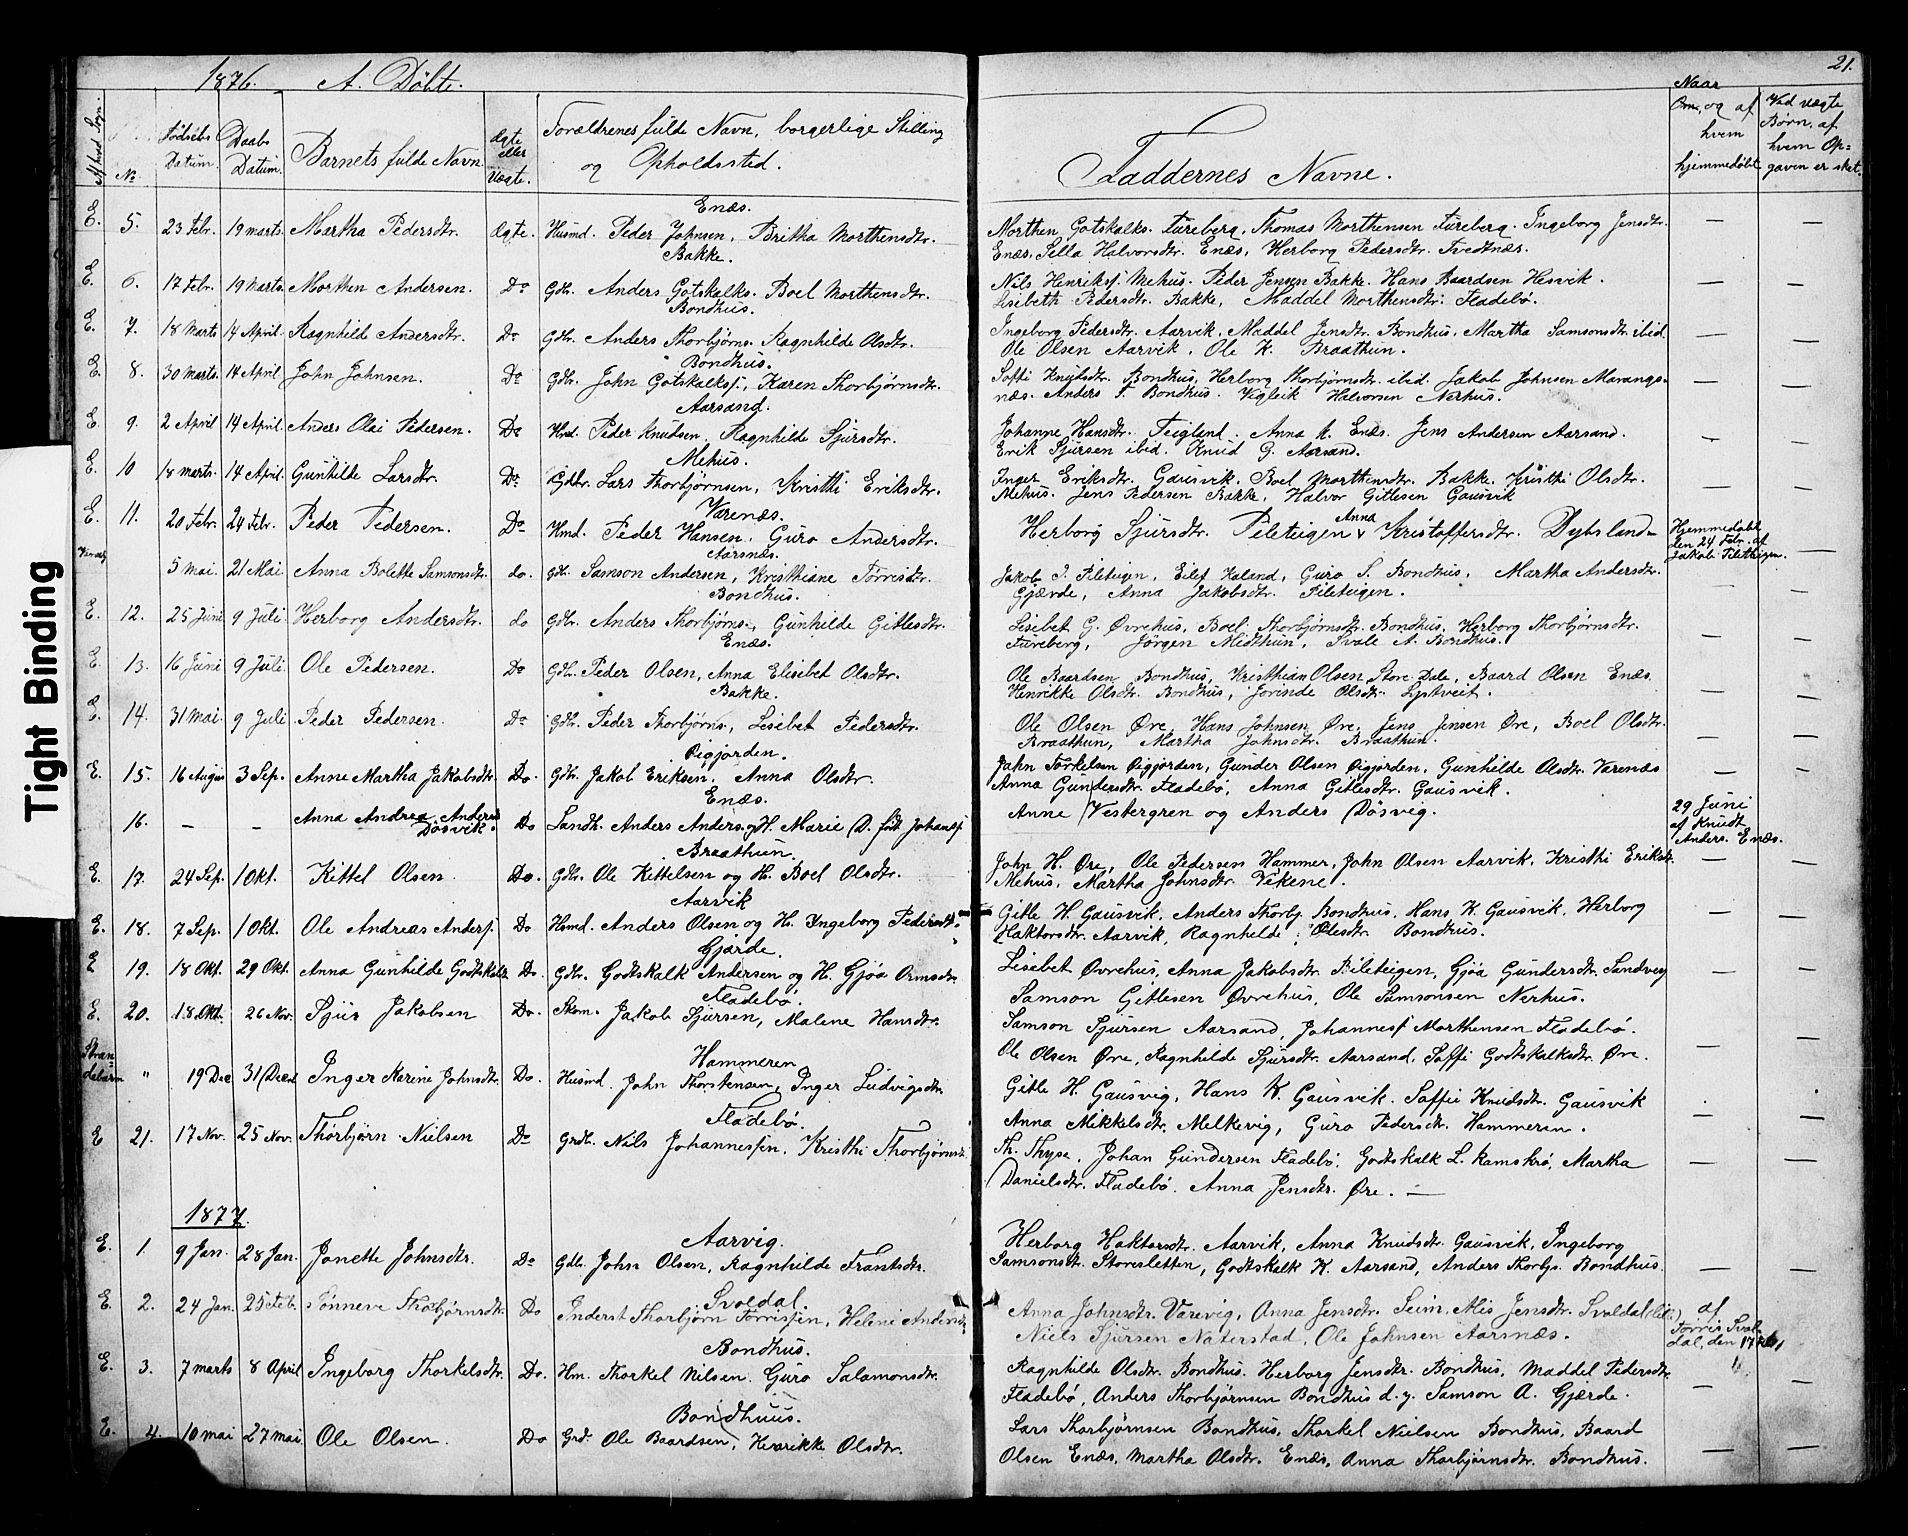 1876. A. Döbte. 21.
Af hvad Sogn. No Fødsels Datum. Daabs Datum. Barnets fulde Navn. Ægte eller Uægte. Forældrenes fulde Navn, borgerlige Stilling og Opholdssted. Faddernes Navne. Naar Om, og af hvem hjemmedøbt Ved uægte Børn, af hvem Op- gaven er sket.
Enæs.
E. 5. 23 Febr. 19 marts. Martha Pedersdtr. Ægte. Husmd. Peder Johnsen, Britha Morthensdtr. Morthen Gotskalks. Fureberg, Thomas Morthensen Fureberg. Ingeborg Jensdtr.
Enæs, Silla Halvorsdtr. Enæs, Herborg Pedersdtr. Tvedtnæs. — —
Bakke.
E. 6. 17 Febr. 19 Marts. Morthen Andersen. Do Gdbr. Anders Gotskalks. Boel Morthensdtr. Nils Henriks. Mehus. Peder Jensen Bakke. Hans Baardsen Hesvik.
Lisebeth Pedersdtr. Bakke, Maddel Morthensdtr. Fladebö. — —
Bondhus.
E. 7. 18 Marts 14 April. Ragnhilde Andersdtr. Do Gdbr. Anders Thorbjörns. Ragnhilde Olsdtr. Ingeborg Pedersdtr. Aarvik, Maddel Jensdtr. Bondhus, Martha Samsonsdtr. ibid.
Ole Olsen Aarvik, Ole K. Braathun. — —
Bondhus.
E. 8. 30 Marts. 14 April John Johnsen. Do Gdbr. John Gotskalks., Karen Thorbjørnsdtr. Soffi Knutsdtr. Bondhus, Herborg Thorbjørnsdtr. ibid. Jakob Johnsen Mavangs-
næs. Anders T. Bondhus. Vigleik Halvorsen Nerhus. — —
Aarsand.
E. 9. 2 April 14 April. Anders Olai Pedersen. Do Hmd. Peder Knudsen. Ragnhilde Sjursdtr. Johanne Hansdtr. Teigland. Anna K. Enæs. Jens Andersen Aarsand.
Erik Sjursen ibid. Knud G. Aarsand. — —
Mehus.
E. 10 18 marts. 14 April. Gunhilde Larsdtr. Do Gdbr. Lars Thorbjørnsen, Kristhi Eriksdtr. Inger Eriksdtr. Gausvik. Boel Morthensdtr. Bakke. Kristhi Olsdtr.
Mehus. Jens Pedersen Bakke, Halvor Gitlesen Gausvik — —
Værenæs.
E. 11. 20 Febr. 24 Febr. Peder Pedersen. Do Hmd. Peder Hansen. Guro Andersdtr. Herborg Sjursdtr. Pileteigen v Anna Kristoffersdtr. Dybsland Hjemmedøbt den 24 Febr. af Jakob Pileteigen. —
Aarsnæs.
5 Mai. 21 Mai. Anna Bolette Samsonsdtr. do. Gdb. Samson Andersen, Kristhiane Torrisdtr. Jakob J. Pileteigen, Eilef Kaland, Guro S. Bondhus, Martha Andersdtr.
Gjærde, Anna Jakobsdtr. Pileteigen. — —
Bondhus.
E. 12. 25 Juni 9 Juli. Herborg Andersdtr. do Gdbr. Anders Thorbjørns., Gunhilde Gitlesdtr. Lisebet G. Øvrehus, Boel Thorbjørnsdtr. Bondhus, Herborg Thorbjørnsdtr.
Fureberg, Jörgen Midthun, Svale A. Bondhus. — —
Enæs.
E. 13. 16 Juni 9 Juli. Ole Pedersen. Do Gdbr. Peder Olsen, Anna Elisebet Olsdtr. Ole Baardsen Bondhus, Kristhian Olsen Store Dale, Baard Olsen Enæs.
Henrikke Olsdtr. Bondhus, Jorinde Olsdtr. — —
Bakke.
E. 14. 31 Mai. 9 Juli Peder Pedersen. Do Gdbr. Peder Thorbjørns, Lisebet Pedersdtr. Ole Olsen Øre, Hans Johnsen Øre, Jens Jensen Øre, Boel Olsdtr.
Braathun, Martha Johnsdtr. Braathun — —
Øigjorden.
E. 15. 16 August 3 Sep. Anne Martha Jakobsdtr. Do. Gdb. Jakob Eriksen, Anna Olsdtr. John Torkelsen Øigjorden, Gunder Olsen Øigjorden, Gunhilde Olsdtr. Værenæs
Anna Gundersdtr. Fladebö, Anna Gitlesdtr. Gausvik. — —
Enæs.
16. — — Anna Andrea Anders Døsvik. Do Landh. Anders Anders. og H. Marie D. født Johans. Anne Vestergren og Anders Døsvig. 29 Juni af Knudt Anders. Enæs.
Braathun.
E. 17. 24 Sep. 1 Okt. Kittel Olsen Do. Gdb. Ole Kittelsen og H. Boel Olsdtr. John H. Øre, Ole Pedersen Hammer, John Olsen Aarvik, Kristhi Eriksdtr.
Mehus, Martha Johnsdtr. Vikene. — —
Aarvik
E. 18. 7 Sep. 1 Okt. Ole Andreas Anders. Do Husmd. Anders Olsen og H. Ingeborg Pedersdtr. Gitle H. Gausvik, Anders Thorbj. Bondhus, Hans K. Gausvik, Herborg
Haktorsdtr. Aarvik, Ragnhilde Olesdtr. Bondhus. — —
Gjærde.
E 19. 18 Okt. 29 Okt. Anna Gunhilde Godtskalk Do. Gdbr. Godtskalk Andersen og H. Gjøa Ormsdtr. Lisebet Øvrehus, Anna Jakobsdtr. Pileteigen, Gjöa Gundersdtr. Sandvig
Samson Gitlesen Øvrehus, Ole Samsonsen Nerhus. — —
Fladebö.
E. 20. 18 Okt. 26 Nov. Sjur Jakobsen Do. Skom. Jakob Sjursen, Malene Hansdtr. Samson Sjursen Aarsand, Johannes Morthensen Fladebö.
Ole Olsen Øre, Ragnhilde Sjursdtr. Aarsand, Soffi Godtskalksdtr. Øre. — —
Hammeren
Stran debarm " 19 Dec. 31 Decbr. Inger Karine Johnsdtr. Do. Husmd. John Thorstensen, Inger Ludvigsdtr. Gitle H. Gausvig, Hans K. Gausvik. Soffie Knudsdtr. Gausvik
Anna Mikkelsdtr. Melkevig, Guro Pedersdtr. Hammeren. — —
Fladebö.
E 21. 17 Nov. 25 Nov. Thorbjørn Nielsen Do Grdb. Nils Johannessen, Kristhi Thorbjørnsdtr. Th. Thyse, Johan Gundersen Fladebö, Godtskalk L. Kamskrö, Martha
Danielsdtr. Fladebö. Anna Jensdtr. Øre. — — —
1877.
Aarvig.
E. 1. 9 Jan. 28 Jan. Janette Johnsdtr. Do Gdb. John Olsen, Ragnhilde Frantsdtr. Herborg Haktorsdtr. Aarvik, Anna Knudsdtr. Gausvik, Ingeborg
Samsonsdt. Storesletten, Godtskalk K. Aarsand, Anders Thorbjs. Bondhus. — —
Svoldal
E. 2. 24 Jan. 25 Feb. Sönneve Thorbjørnsdtr. Do Inderst Thorbjørn Torrissen, Helene Andersdtr. Anna Johnsdtr. Varevig, Anna Jensdtr. Seim, Alis Jensdtr. Svoldal
Niels Sjursen Naterstad, Ole Johnsen Aarsnæs. af Torris Svol- dal, den 17
Bondhus.
E. 3. 7 marts 8 April Ingeborg Thorkelsdtr. Do. Hm. Thorkel Nilsen. Guro Salamonsdtr. Ragnhilde Olsdtr. Bondhus. Herborg Jensdtr. Bondhus, Maddel Pedersdtr.
Fladebö, Anders Thorbjørnsen Bondhus d. y. Samson A. Gjærde. — —
Bondhuus.
E. 4. 10 mai 27 mai Ole Olsen. Do Grd. Ole Baardsen, Henrikke Olsdtr. Lars Thorbjørnsen Bondhus, Thorkel Nielsen Bondhus, Baard
Olsen Enæs, Martha Olsdtr. Enæs, Anna Thorbjørnsdtr. Bondhus. — —
Tight Binding